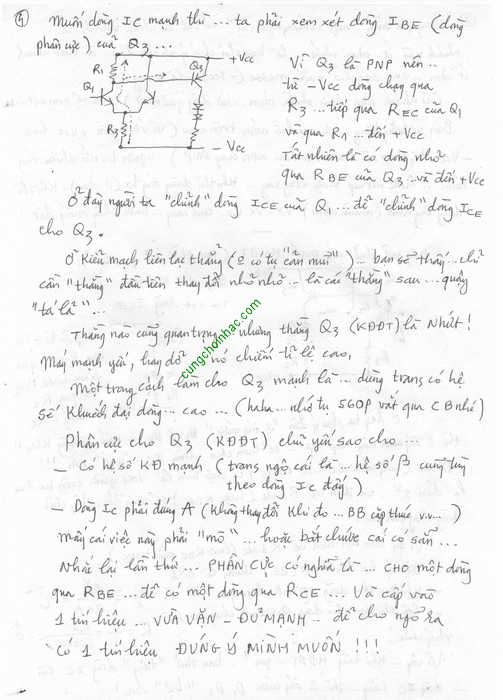 4
Muốn dòng Ic mạnh thì ... ta phải xem xét dòng IBE (dòng
phân cực) của Q3 ...
R1
Q3
+Vcc
Q1
R3
- Vcc
Vì Q3 là PNP nên ..
từ -Vcc dòng chạy qua
R3 ... tiếp qua REC của Q1
và qua R1 ... đến +Vcc
Tất nhiên là có dòng nhỏ
qua RBE của Q3 .. và đến +Vcc
Ở đây người ta "chỉnh" dòng ICE của Q1 ... để "chỉnh" dòng ICE
cho Q3.
Ở kiểu mạch liên lạc thẳng (o có tụ "cản mũi") ... bạn sẽ thấy ... chỉ
cần "thằng" đầu tiên thay đổi nhỏ nhỏ .. là cái "thằng" sau ... quậy
"tá lả" ...
Thằng nào cũng quan trọng .. nhưng thằng Q3 (KĐĐT) là Nhứt!
Máy mạnh yếu, hay dở .. nó chiếm tỉ lệ cao,
Một trong cách làm cho Q3 mạnh là ... dùng trans có hệ
số khuếch đại dòng ... cao ... (haha .. nhớ tụ 560P vắt qua CB nhé)
Phân cực cho Q3 (KĐĐT) chủ yếu sao cho ...
- Có hệ số KĐ mạnh (trans ngộ cái là ... hệ số β cũng tùy
theo dòng Ic đấy)
- Dòng Ic phải đúng A (không thay đổi khi đo ... BB cấp thức v.v... )
Mấy cái việc này phải "mò" ... hoặc bắt chước cái có sẵn ...
Nhắc lại lần thứ ... PHÂN CỰC có nghĩa là ... CHO một dòng
qua RBE ... để có một dòng qua RCE ... Và cấp vào
1 tín hiệu ... VỪA VẶN - ĐỦ MẠNH .. để cho ngõ ra
có 1 tín hiệu ĐÚNG Ý MÌNH MUỐN !!!
cungchoinhac.com